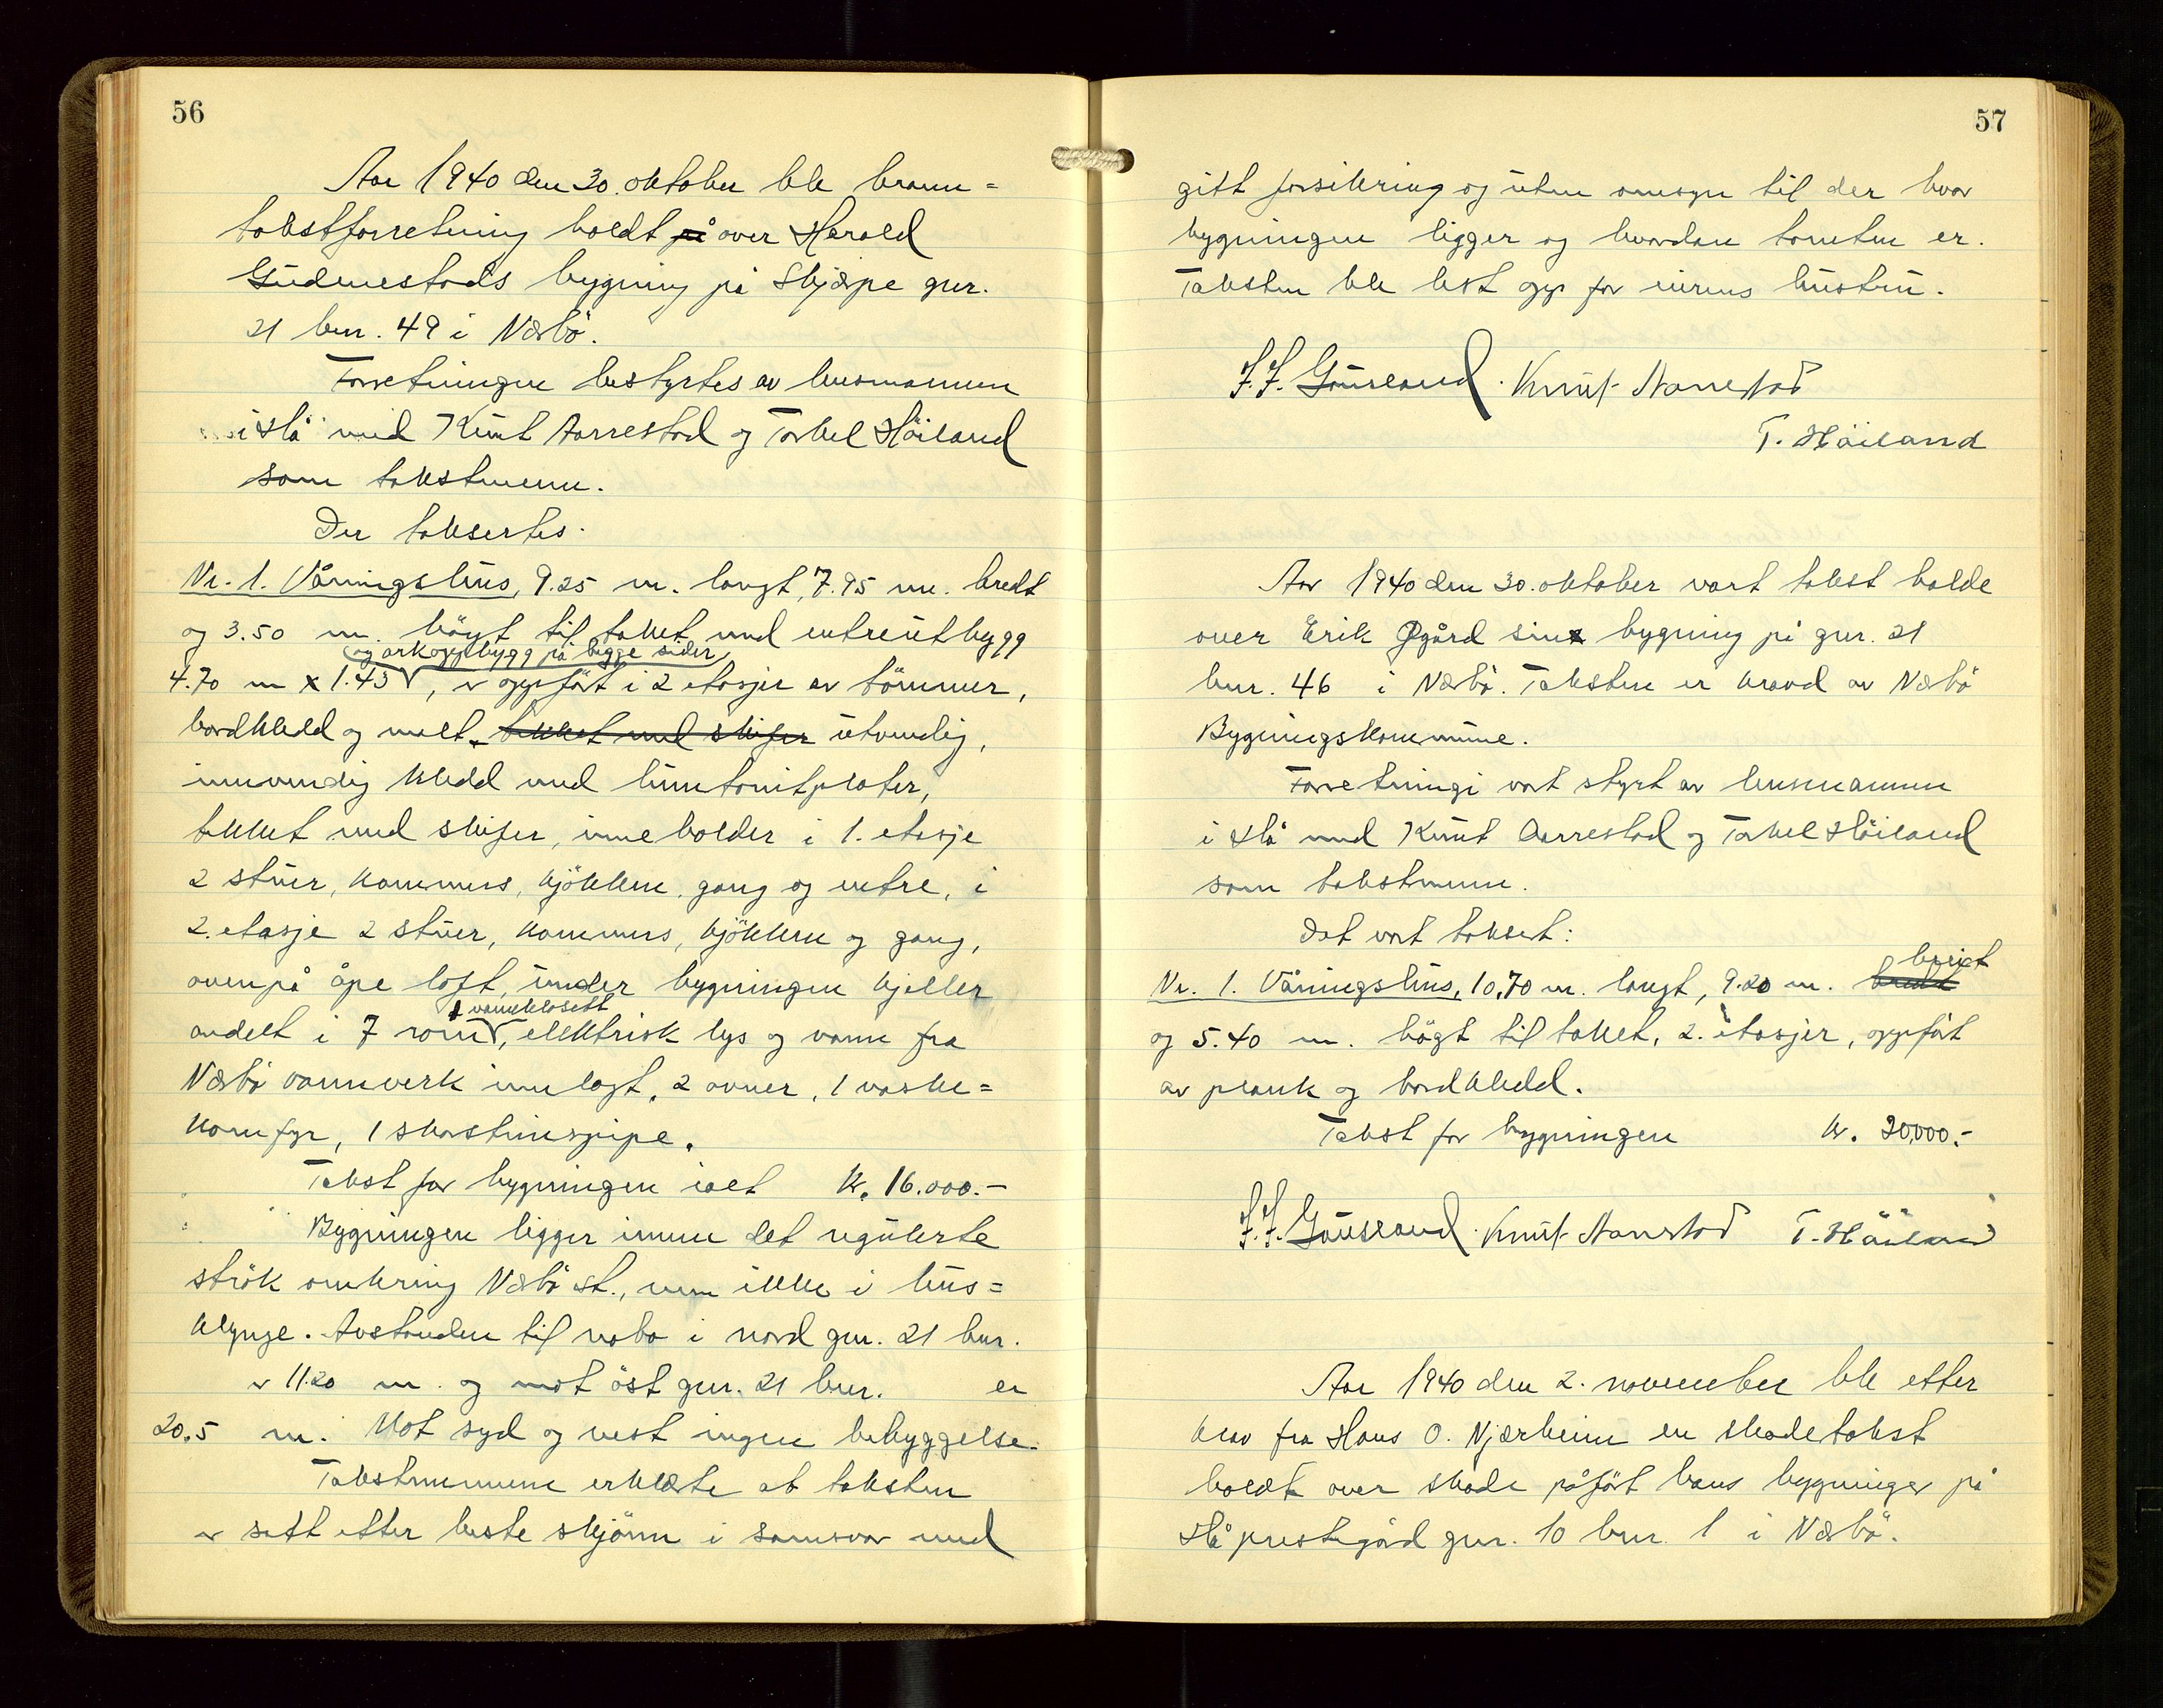 56
Aar 1940 den 30. oktober ble brann=
takstforretning holdt på over Harald
Gudmestads bygning på Skjærpe gnr.
21 bnr. 49 i Nærbö.
Forretningen bestyrtes av lensmannen
i Hå med Knut Aarrestad og Torkel Höiland
som takstmenn.
Der taksertes.
Nr. 1. Våningshus, 9.25 m. langt, 7.95 m. bredt
og 3.50 m. högt til taket med entreutbygg
og arkoppbygg på begge sider
4.70 m x 1.43, er oppfört i 2 etasjer av tömmer,
bordkledd og malt. tekket med skifer utvendig,
innvendig kledd med huntonitplater,
tekket med skifer, inneholder i 1. etasje
2 stuer, kammers, kjökken, gang og entre, i
2. etasje 2 stuer, kammers, kjökken og gang,
ovenpå åpe loft, under bygningen kjeller
1 vannklosett
avdelt i 7 rom, elektrisk lys og vann fra
Nærbö vannverk innlagt, 2 ovner, 1 vaske=
komfyr, 1 skorstinspipe.
Takst for bygningen ialt kr. 16.000.-
Bygningen ligger innen det regulerte
strök omkring Nærbö st., men ikke i hus=
klynge. Avstanden til nabo i nord gnr. 21 bnr.
er 11.20 m. og mot öst gnr. 21 bnr. er
20.5 m. Mot syd og vest ingen bebyggelse.
Takstmennene erklærte at taksten
er satt etter beste skjönn i samsvar med
57
gitt forsikring og uten omsyn til der hvor
bygningen ligger og hvordan tomten er.
Taksten ble lest opp for eierens hustru.
J. J. Gausland. Knut Aarrestad
T. Höiland
Aar 1940 den 30. oktober vart takst halde
over Erik Øgård sin bygning på gnr. 21
bnr. 46 i Nærbö. Taksten er kravd av Nærbö
Bygningskommune.
Forretningi vart styrt av lensmannen
i Hå med Knut Aarrestad og Torkel Höiland
som takstmenn.
Det vart taksert:
breidt
Nr. 1. Våningshus, 10,70 m. langt, 9.20 m. bredt
og 5.40 m. högt til taket, 2. etasjer, oppfört
av plank og bordkledd.
Takst for bygningen kr. 20,000.-
J. J. Gausland. Knut Aarrestad T. Höiland
Aar 1940 den 2. november ble etter
krav fra Hans O. Njærheim en skadetakst
holdt over skade påfört hans bygninger på
Hå prestegård gnr. 10 bnr. 1 i Nærbö.